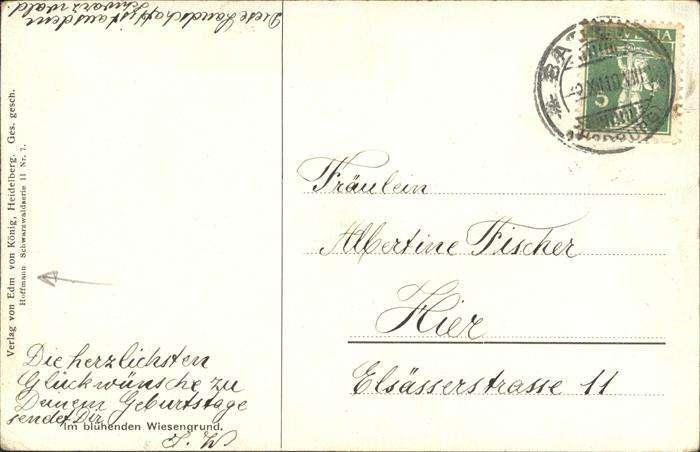 Diese Landschaft
ist aus dem
Schwarzwald
Verlag von Edm von König, Heidelberg. Ges. gesch.
Hoffmann Schwarzwaldserie II Nr. 7.
HELVETIA
5
Fräulein
Albertine Fischer
Hier
Elsässerstrasse 11
Die herzlichsten
Glückwünsche zu
Deinem Geburtstage
sendet Dir
Im blühenden Wiesengrund.